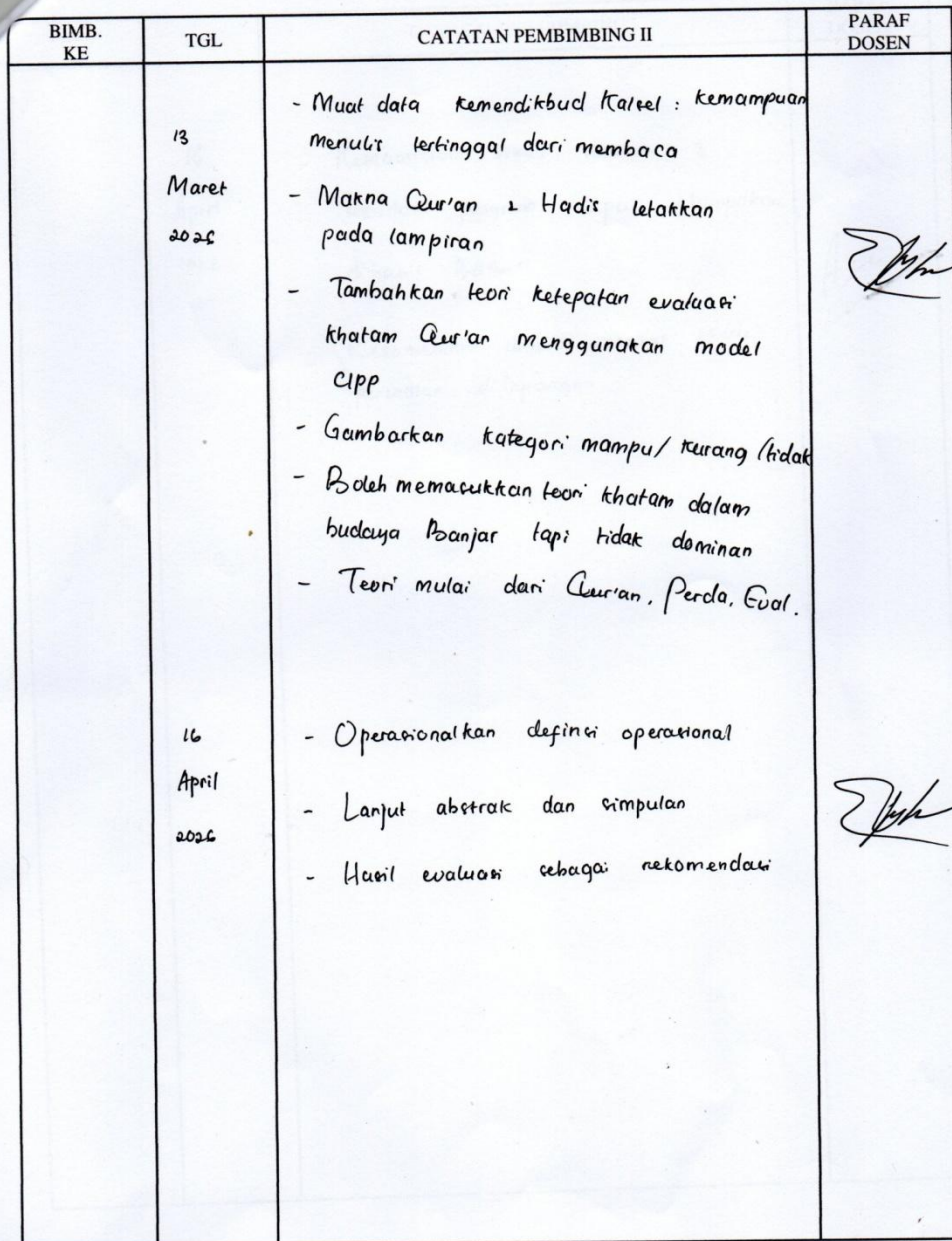 BIMB. KE
TGL
CATATAN PEMBIMBING II
PARAF DOSEN
13 Maret 2026
- Muat data Kemendikbud Kalsel : kemampuan
menulis tertinggal dari membaca
- Makna Qur'an & Hadis letakkan
pada lampiran
- Tambahkan teori ketepatan evaluasi
khatam Qur'an menggunakan model
CIPP
- Gambarkan kategori mampu/ kurang /tidak
- Boleh memasukkan teori khatam dalam
budaya Banjar tapi tidak dominan
- Teori mulai dari Qur'an, Perda, Eval.
16 April 2026
- Operasionalkan definsi operasional
- Lanjut abstrak dan simpulan
- Hasil evaluasi sebagai rekomendasi